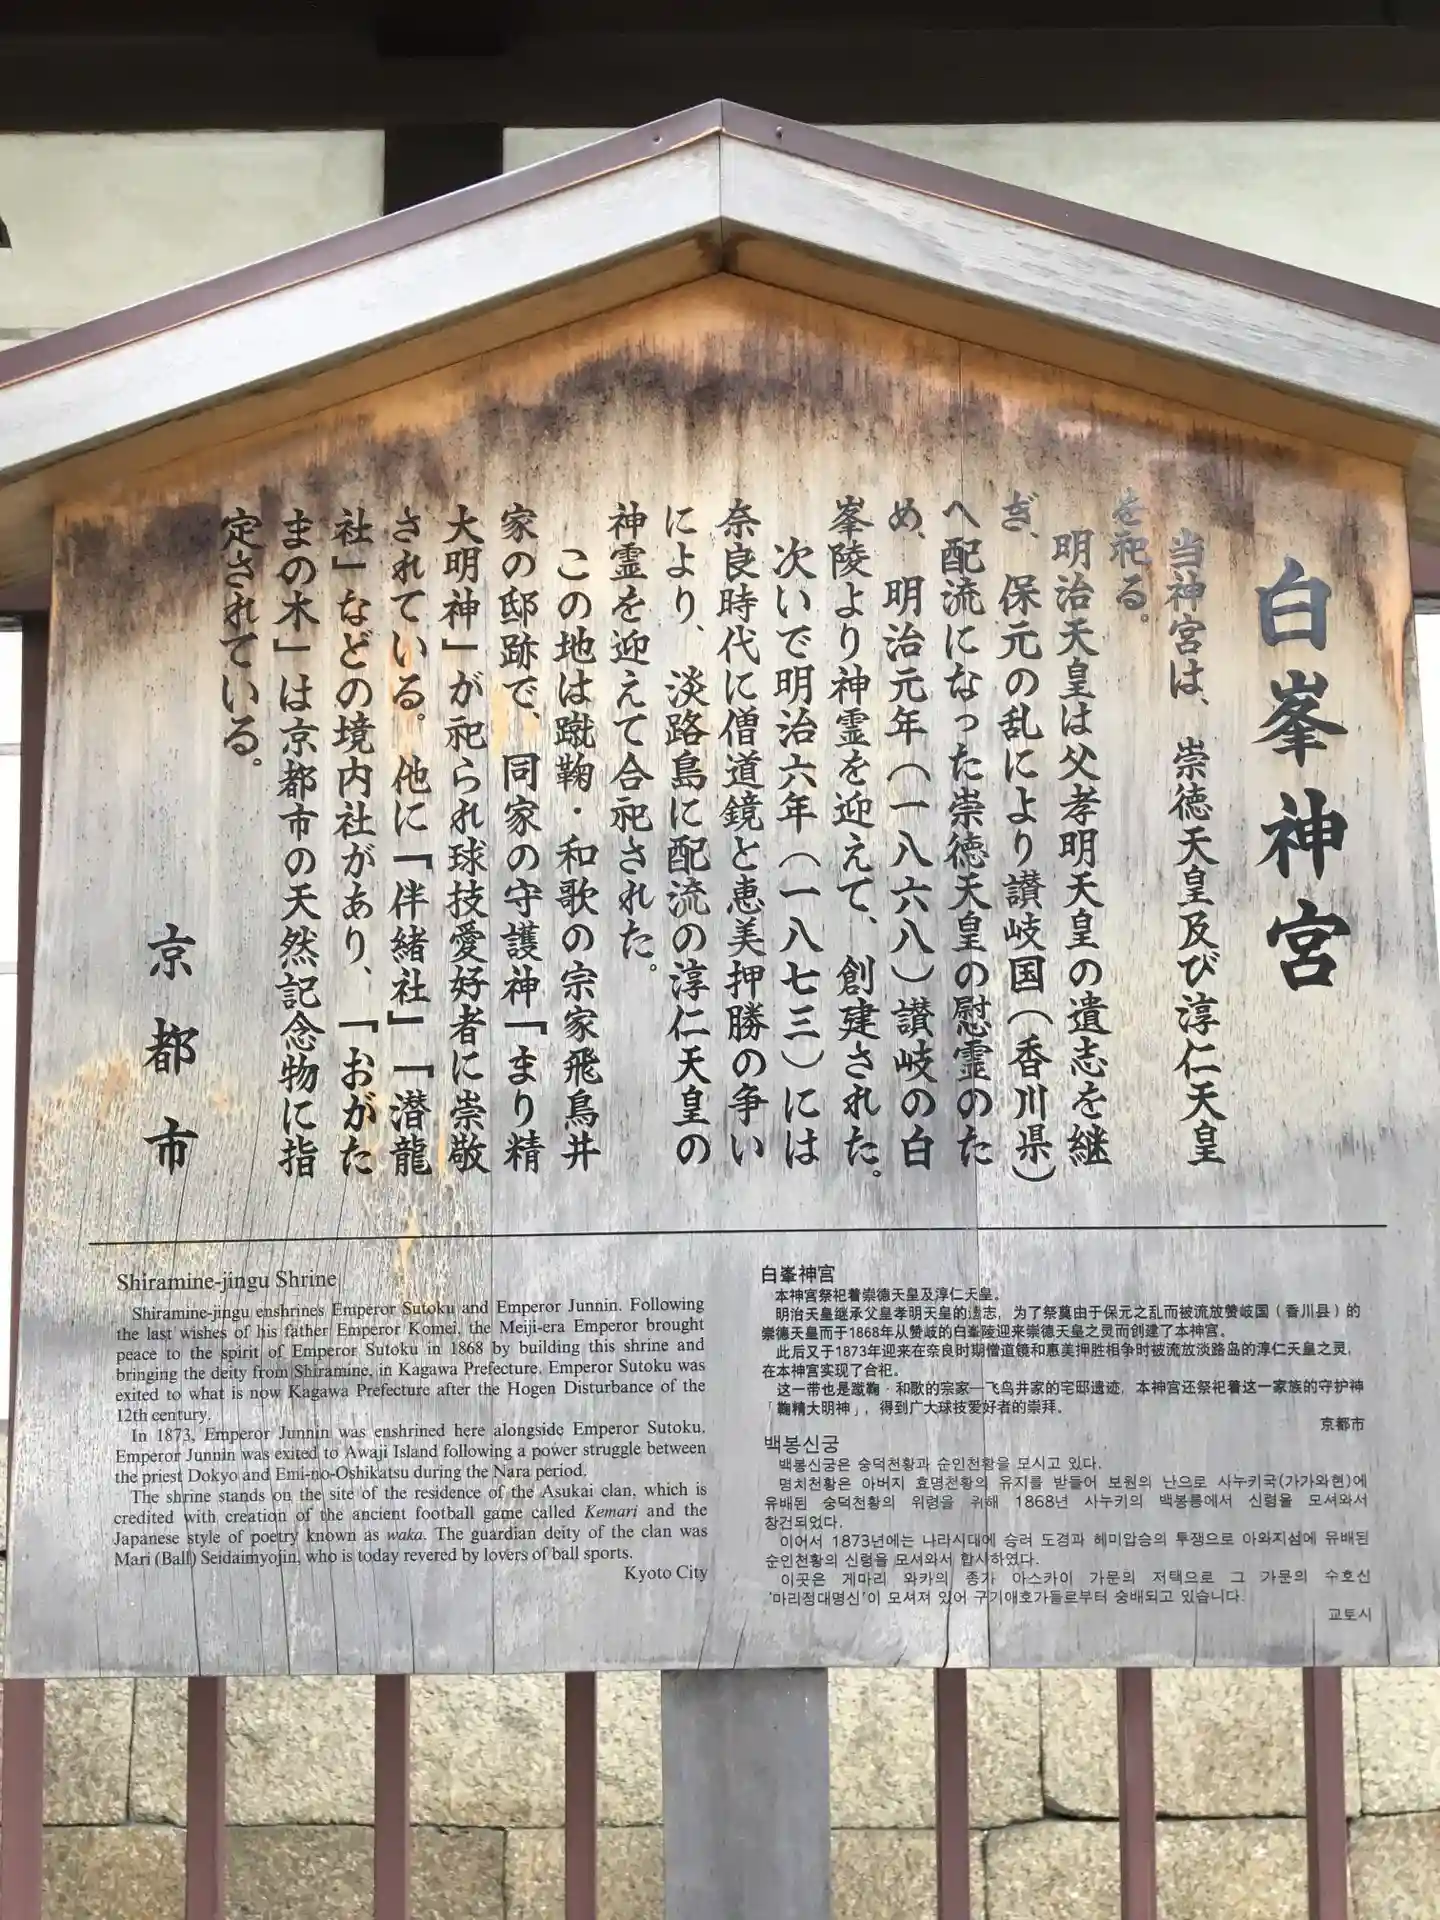 白峯神宮
当神宮は、崇徳天皇及び淳仁天皇
を祀る。
明治天皇は父孝明天皇の遺志を継
ぎ、保元の乱により讃岐国（香川県）
へ配流になった崇徳天皇の慰霊のた
め、明治元年（一八六八）讃岐の白
峯陵より神霊を迎えて、創建された。
次いで明治六年（一八七三）には
奈良時代に僧道鏡と恵美押勝の争い
により、淡路島に配流の淳仁天皇の
神霊を迎えて合祀された。
この地は蹴鞠・和歌の宗家飛鳥井
家の邸跡で、同家の守護神「まり精
大明神」が祀られ球技愛好者に崇敬
されている。他に「伴緒社」「潜龍
社」などの境内社があり、「おがた
まの木」は京都市の天然記念物に指
定されている。
京都市
Shiramine-jingu Shrine
Shiramine-jingu enshrines Emperor Sutoku and Emperor Junnin. Following
the last wishes of his father Emperor Komei, the Meiji-era Emperor brought
peace to the spirit of Emperor Sutoku in 1868 by building this shrine and
bringing the deity from Shiramine, in Kagawa Prefecture. Emperor Sutoku was
exited to what is now Kagawa Prefecture after the Hogen Disturbance of the
12th century.
In 1873, Emperor Junnin was enshrined here alongside Emperor Sutoku.
Emperor Junnin was exited to Awaji Island following a power struggle between
the priest Dokyo and Emi-no-Oshikatsu during the Nara period.
The shrine stands on the site of the residence of the Asukai clan, which is
credited with creation of the ancient football game called Kemari and the
Japanese style of poetry known as waka. The guardian deity of the clan was
Mari (Ball) Seidaimyojin, who is today revered by lovers of ball sports.
Kyoto City
白峯神宫
本神宫祭祀着崇德天皇及淳仁天皇。
明治天皇继承父皇孝明天皇的遗志，为了祭奠由于保元之乱而被流放赞岐国（香川县）的
崇德天皇而于1868年从赞岐的白峯陵迎来崇德天皇之灵而创建了本神宫。
此后又于1873年迎来在奈良时期僧道镜和惠美押胜相争时被流放淡路岛的淳仁天皇之灵，
在本神宫实现了合祀。
这一带也是蹴鞠·和歌的宗家—飞鸟井家的宅邸遗迹，本神宫还祭祀着这一家族的守护神
「鞠精大明神」，得到广大球技爱好者的崇拜。
京都市
백봉신궁
백봉신궁은 숭덕천황과 순인천황을 모시고 있다.
명치천황은 아버지 효명천황의 유지를 받들어 보원의 난으로 사누키국(가가와현)에
유배된 숭덕천황의 위령을 위해 1868년 사누키의 백봉릉에서 신령을 모셔와서
창건되었다.
이어서 1873년에는 나라시대에 승려 도경과 헤미압승의 투쟁으로 아와지섬에 유배된
순인천황의 신령을 모셔와서 합사하였다.
이곳은 게마리 와카의 종가 아스카이 가문의 저택으로 그 가문의 수호신
'마리정대명신'이 모셔져 있어 구기애호가들로부터 숭배되고 있습니다.
교토시